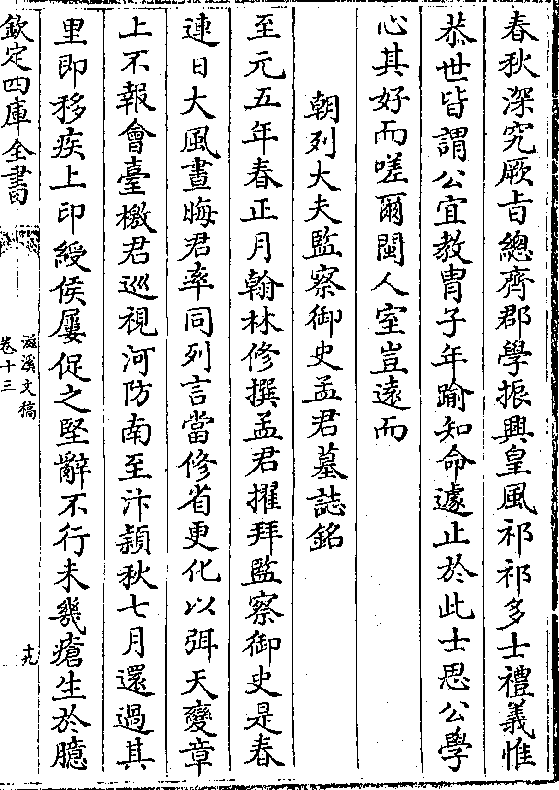 春秋深究厥旨總齊郡學振興皇風祁祁多士禮義惟
恭世皆謂公宜教胄子年踰知命遽止於此士思公學
心其好而嗟爾閩人室豈遠而
朝列大夫監察御史孟君墓誌銘
至元五年春正月翰林修撰孟君擢拜監察御史是春
連日大風晝晦君率同列言當修省更化以弭天變章
上不報會臺檄君巡視河防南至汴潁秋七月還過其
里即移疾上印綬侯屢促之堅辭不行未幾瘡生於臆
欽定四庫全書
滋溪文稿
卷十三
十九